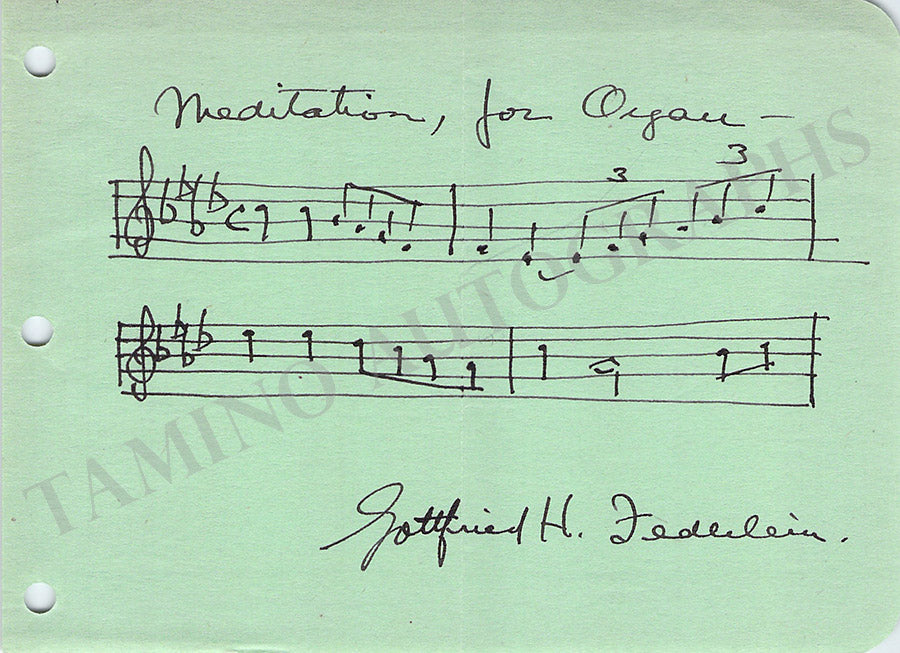 Meditation, for Organ –
3 3
TAMINO AUTOGRAPHS
Gottfried H. Federlein.